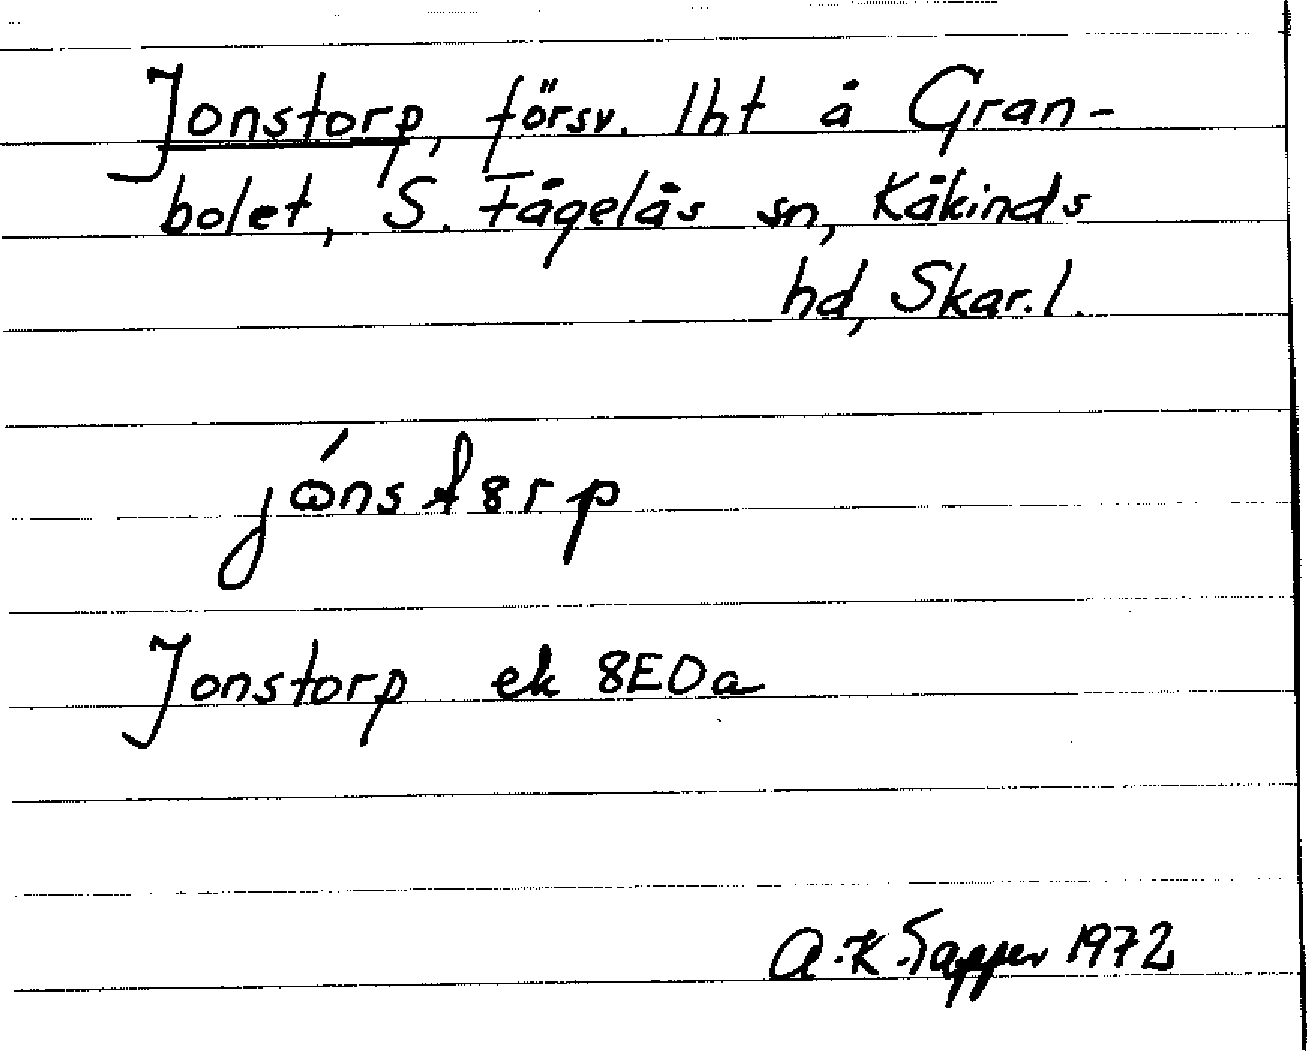 Jonstorp, försv. lht å Gran-
bolet, S. Fågelås sn, Kåkinds
hd, Skar. l.
Jonstorp ek 8E0a
A.-K. Tapper 1972